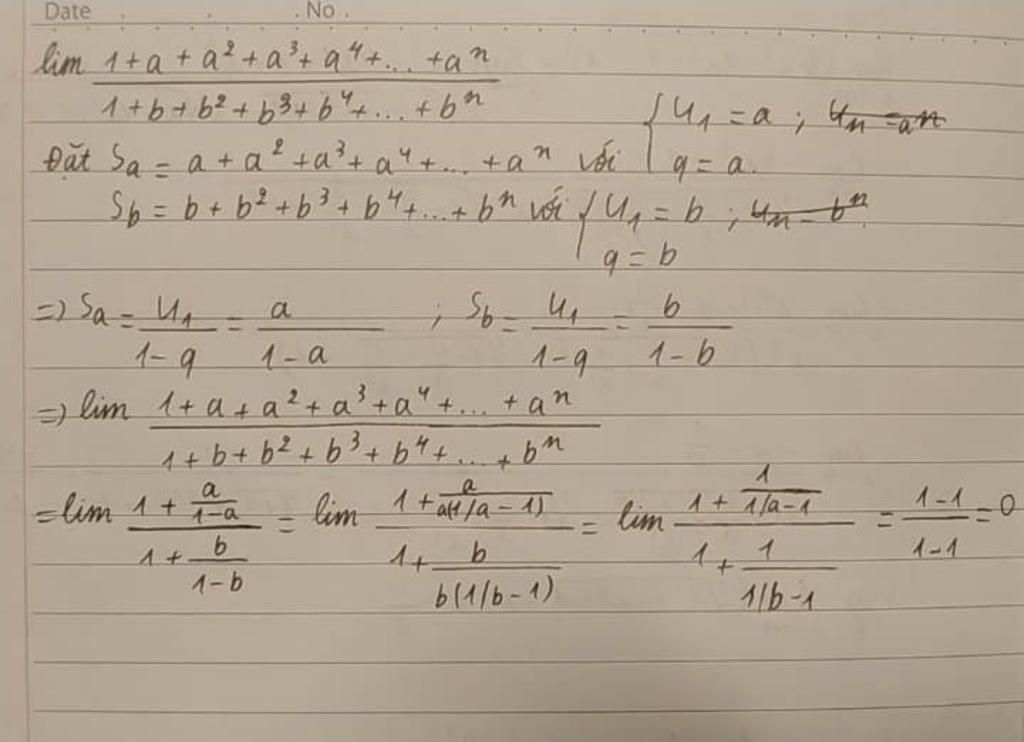 Date . . . No .
lim (1+a+a²+a³+a⁴+...+aⁿ)/(1+b+b²+b³+b⁴+...+bⁿ)
Đặt Sa = a+a²+a³+a⁴+...+aⁿ với { u₁ = a ; uₙ = aⁿ
q = a.
Sb = b+b²+b³+b⁴+...+bⁿ với { u₁ = b ; uₙ = bⁿ
q = b
=> Sa = u₁/(1-q) = a/(1-a) ; Sb = u₁/(1-q) = b/(1-b)
=> lim (1+a+a²+a³+a⁴+...+aⁿ)/(1+b+b²+b³+b⁴+...+bⁿ)
= lim (1 + a/(1-a))/(1 + b/(1-b)) = lim (1 + a/(a(1/a-1)))/(1 + b/(b(1/b-1))) = lim (1 + 1/(1/a-1))/(1 + 1/(1/b-1)) = (1-1)/(1-1) = 0